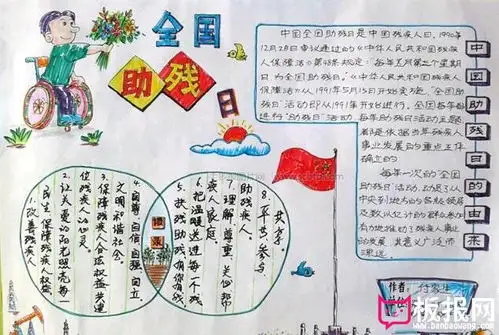 全国
助残
日
中国全国助残日是中国残疾人日。1990年
12月28日审议通过的《中华人民共和国残疾人
保障法》第48条规定:"每年五月第三个星期
日为全国助残日。"《中华人民共和国残疾人
保障法》从1991年5月15日开始实施,"全国助残
日"活动即从1991年开始进行。全国每年
进行"助残日"活动
每年助残日活动主题
都是依据当年残疾人
事业发展的重点工作
确立的
每年一次的"全国
助残日"活动,动员了从
中央到
有力地推动了残疾人事业
的发展
中国助残日的由来
1 改善残疾人
民生 保障残疾人权益
2 让关爱的阳光照亮每一
位残疾人的心灵
3 保障残疾人合法权益 共建
文明和谐社会
4 自尊 自信 自强 自立
5 扶残助残 有你有我
6 把温暖送进每一个残
疾人家庭
7 理解 尊重 关心 帮
助残疾人
8 平等 参与
共享
作者:
板报网
www.banbaowang.com